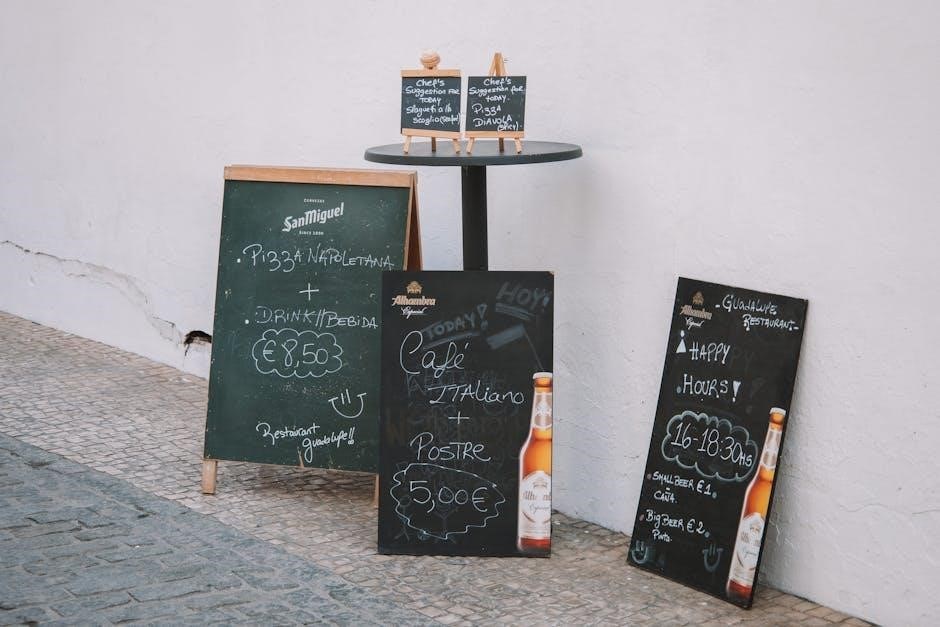 Chef's
Suggestion for
TODAY
Scoglio (Seafood)
Chef's
Suggestion for
TODAY.
Pizza
DiAVOLA
(Spicy).
CERVEZAS
SanMiguel
SINCE 1890
• Pizza NAPOLETANA
+
• DRiNK//BEBiDA
€8,50
Restaurant
Guadalupe!!
Alhambra
Especial
TODAY!
HOY!
Café
iTALiano
+
POSTRE
5,00€
Alhambra
Especial
- GUADALUPE
RESTAURANT -
HAPPY
HOURS!
16-18:30HS
SMALL BEER €1.
CAÑA.
BiG BEER €2.
Pinta.